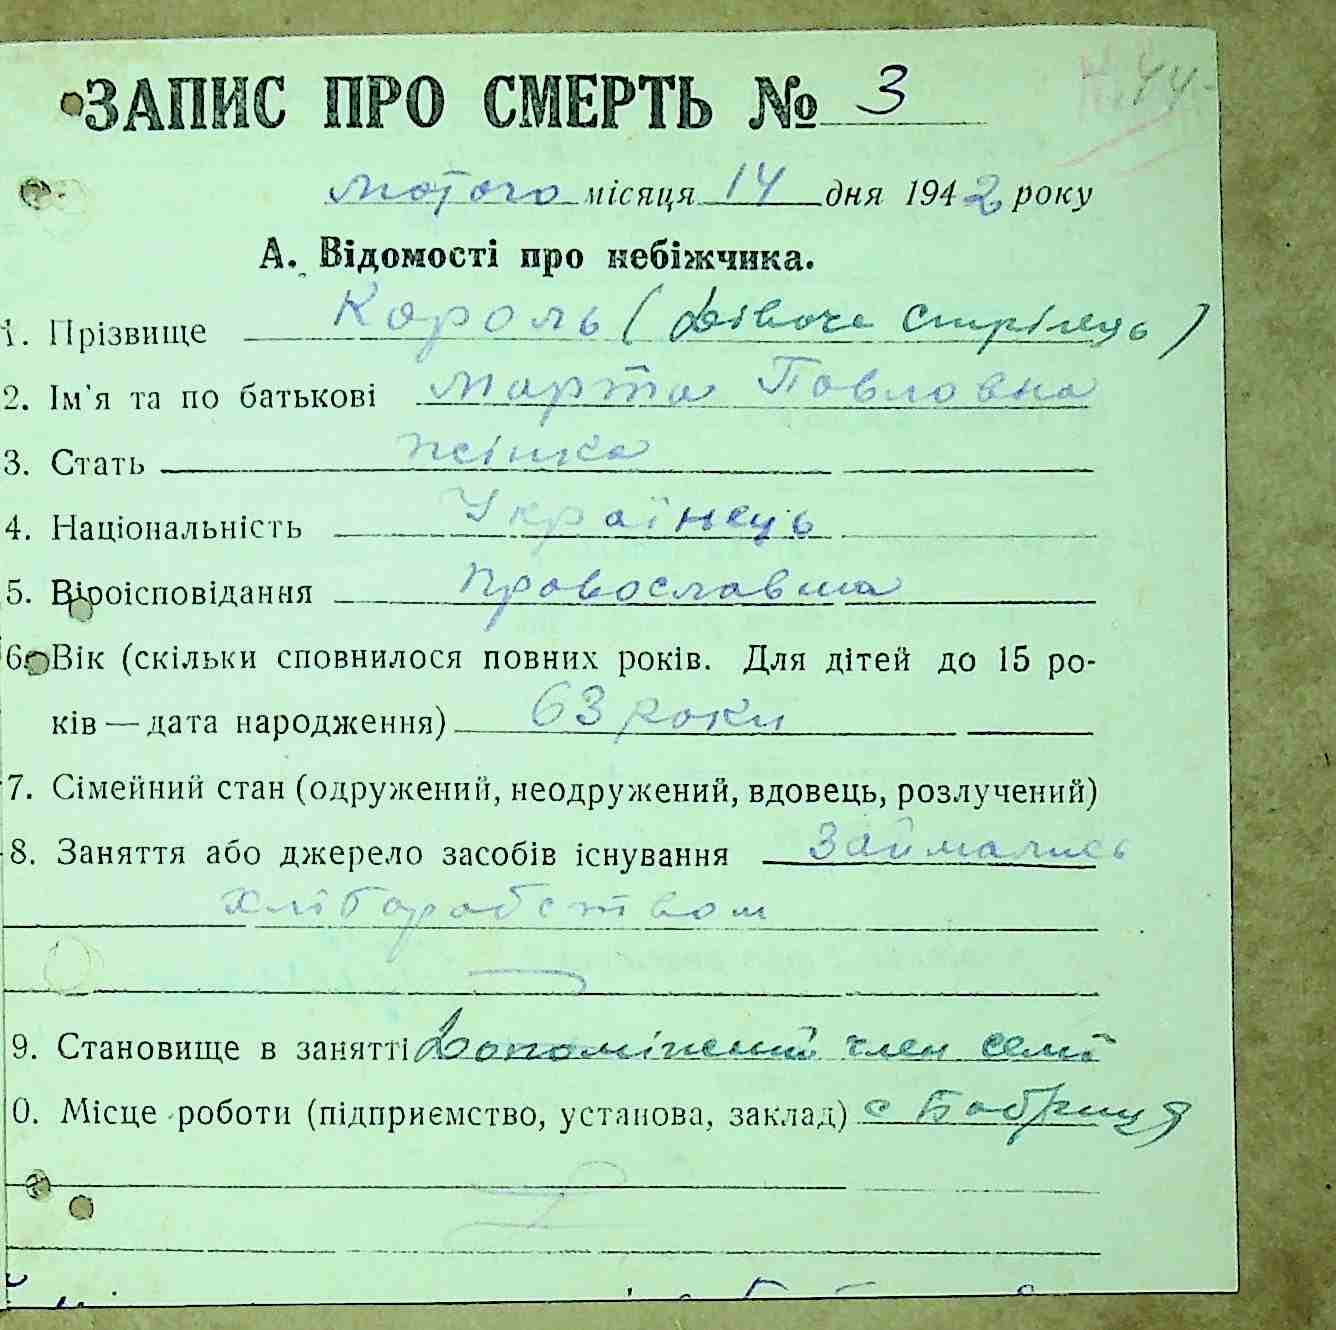 44
ЗАПИС ПРО СМЕРТЬ № 3
лютого місяця 14 дня 1942 року
А. Відомості про небіжчика.
1. Прізвище Король (дівоче Стрілець)
2. Ім'я та по батькові Марта Повловна
3. Стать жінка
4. Національність Українець
5. Віроісповідання провославна
6. Вік (скільки сповнилося повних років. Для дітей до 15 ро-
ків — дата народження) 63 роки
7. Сімейний стан (одружений, неодружений, вдовець, розлучений)
8. Заняття або джерело засобів існування Займались
хліборобством
9. Становище в занятті Допоміжний член семї
0. Місце роботи (підприємство, установа, заклад) с Бобриця